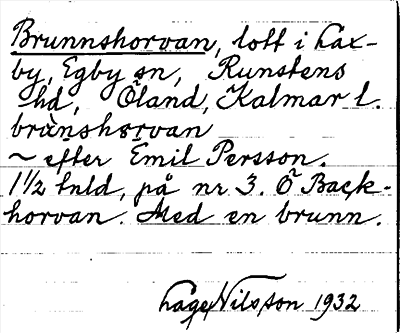 Brunnshorvan, lott i Lax-
by, Egby sn, Runstens
hd, Öland, Kalmar l.
brùnshòrvan
~ efter Emil Persson.
1 1/2 tnld, på nr 3. Ö Back-
horvan. Med en brunn.
Låge Nilsson 1932